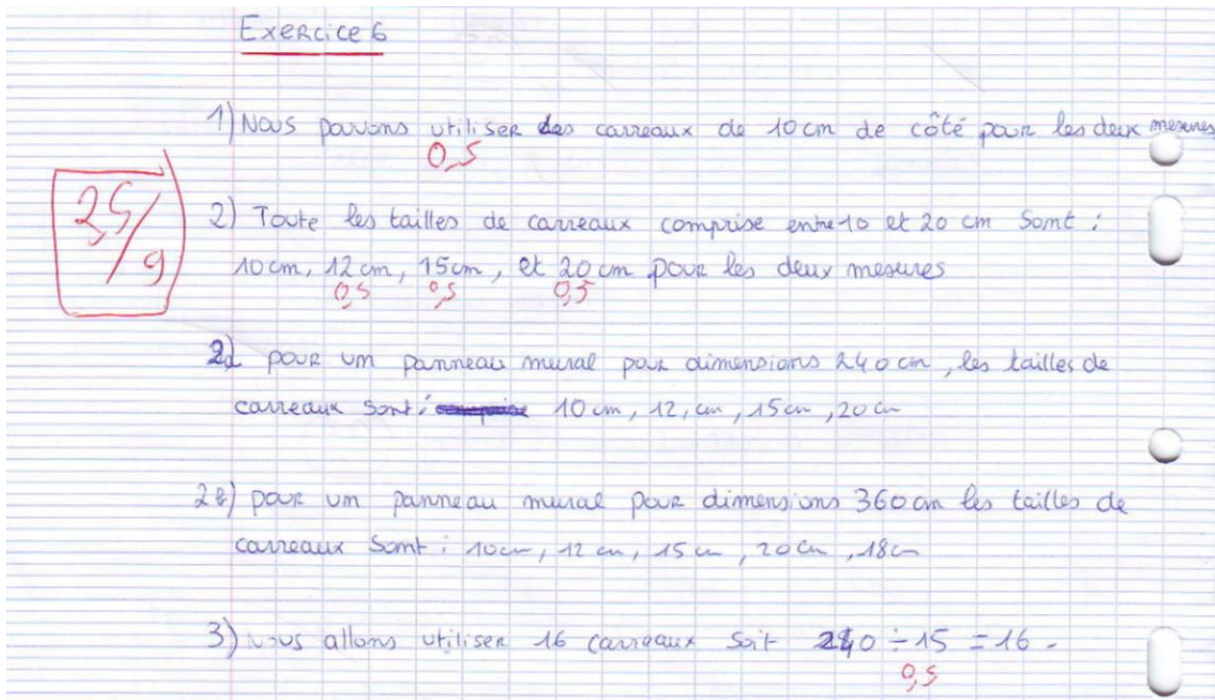 Exercice 6
1) Nous pouvons utiliser des carreaux de 10 cm de côté pour les deux mesures
0,5
2,5/9
2) Toute les tailles de carreaux comprise entre 10 et 20 cm sont :
10cm, 12 cm, 15cm, et 20 cm pour les deux mesures
0,5 0,5 0,5
2) pour un panneau mural pour dimensions 240 cm, les tailles de
carreaux sont : 10 cm, 12, cm, 15cm, 20 cm
2) pour un panneau mural pour dimensions 360 cm les tailles de
carreaux sont : 10cm, 12 cm, 15 cm, 20 cm, 18cm
3) Nous allons utiliser 16 carreaux soit 240 ÷ 15 = 16.
0,5